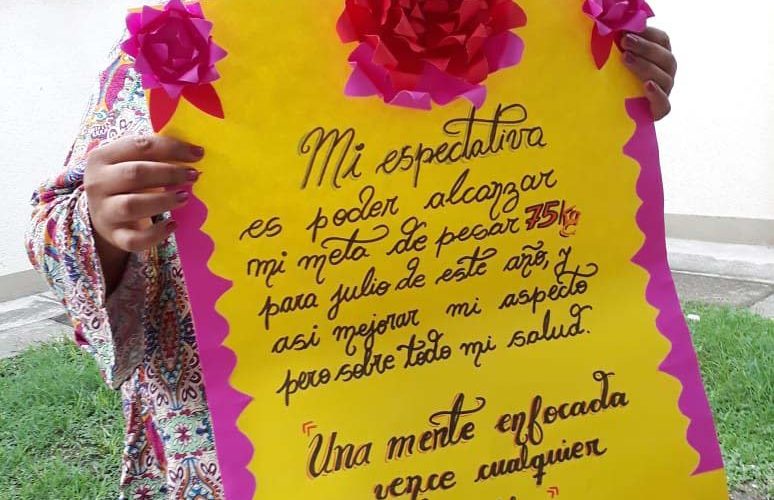 Mi espectativa
es poder alcanzar
mi meta de pesar 75kg
para julio de este año, y
asi mejorar mi aspecto
pero sobre todo mi salud.
"Una mente enfocada
vence cualquier